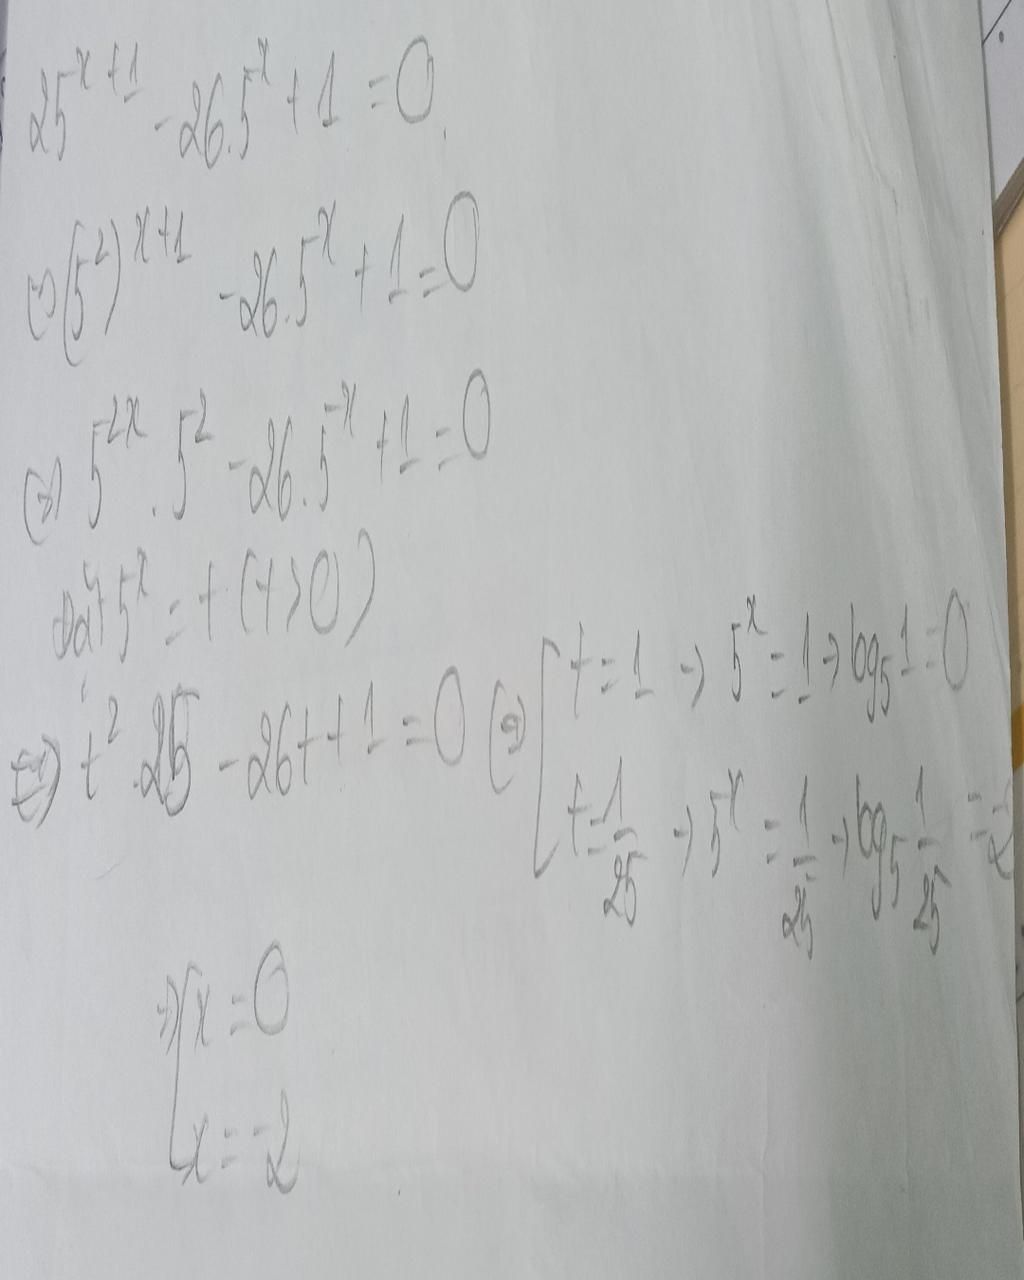 25^{x+1} - 26.5^x + 1 = 0
⇔ (5^2)^{x+1} - 26.5^x + 1 = 0
⇔ 5^{2x} . 5^2 - 26.5^x + 1 = 0
Đặt 5^x = t (t > 0)
⇔ t^2 . 25 - 26t + 1 = 0 ⇔ [ t = 1 → 5^x = 1 → log_5 1 = 0
t = 1/25 → 5^x = 1/25 → log_5 1/25 = -2
⇒ [ x = 0
x = -2